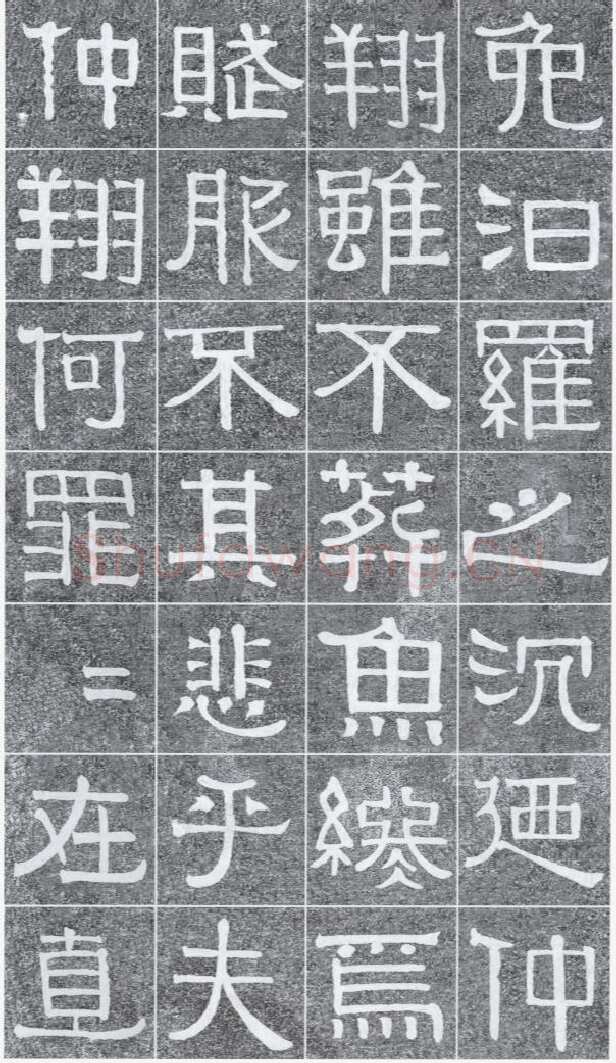 免汨羅之沉廼仲
翔雖不葬魚焉
賦服不其悲乎夫
仲翔何罪二在直
Shufawang.CN